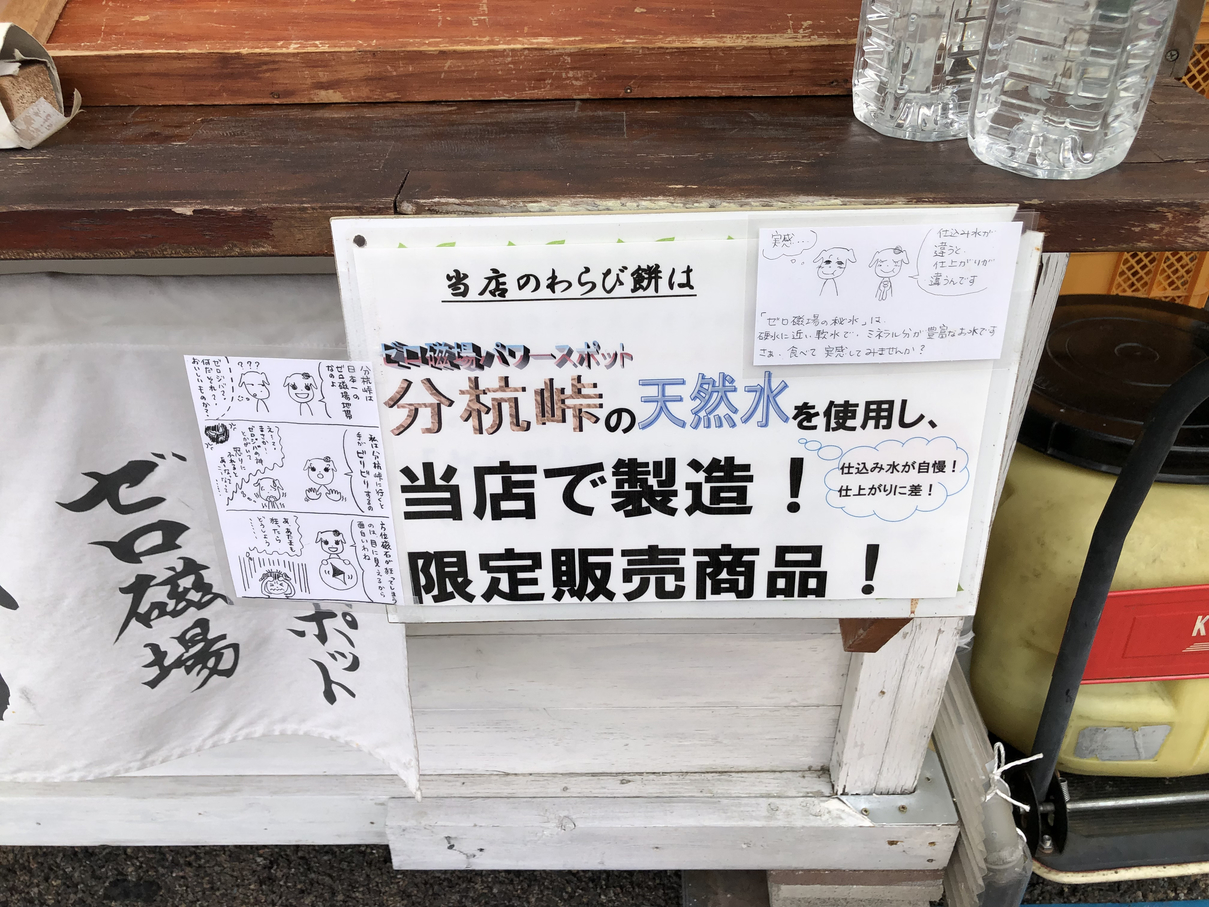 当店のわらび餅は
ゼロ磁場パワースポット
分杭峠の天然水を使用し、
当店で製造！
仕込み水が自慢！
仕上がりに差！
限定販売商品！
実感…
仕込み水が
違うと
仕上がりが
違うんです
「ゼロ磁場の秘水」は、
硬水に近い軟水で、ミネラル分が豊富なお水です
さぁ、食べて実感してみませんか？
分杭峠は
日本一の
ゼロ磁場地帯
なのよ
？？？
ゼロジバ？
何だそれ？
おいしいものか？
私は分杭峠に行くと
手がビリビリするの
えーー
方位磁石が狂ってしまう
のは目に見えるから
面白いわね
狂ったら
どうしよう
ゼロ磁場
ポット
K